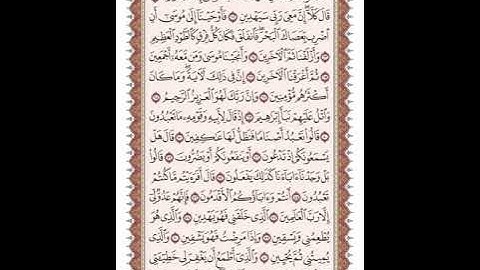 قَالَ كَلَّا إِنَّ مَعِيَ رَبِّي سَيَهْدِينِ ۝ فَأَوْحَيْنَا إِلَىٰ مُوسَىٰ أَنِ
ٱضْرِب بِّعَصَاكَ ٱلْبَحْرَ فَٱنفَلَقَ فَكَانَ كُلُّ فِرْقٍ كَٱلطَّوْدِ ٱلْعَظِيمِ
۝ وَأَزْلَفْنَا ثَمَّ ٱلْءَاخَرِينَ ۝ وَأَنجَيْنَا مُوسَىٰ وَمَن مَّعَهُۥٓ أَجْمَعِينَ
۝ ثُمَّ أَغْرَقْنَا ٱلْءَاخَرِينَ ۝ إِنَّ فِي ذَٰلِكَ لَءَايَةً وَمَا كَانَ
أَكْثَرُهُم مُّؤْمِنِينَ ۝ وَإِنَّ رَبَّكَ لَهُوَ ٱلْعَزِيزُ ٱلرَّحِيمُ ۝
وَٱتْلُ عَلَيْهِمْ نَبَأَ إِبْرَٰهِيمَ ۝ إِذْ قَالَ لِأَبِيهِ وَقَوْمِهِۦ مَا تَعْبُدُونَ
۝ قَالُوا۟ نَعْبُدُ أَصْنَامًا فَنَظَلُّ لَهَا عَٰكِفِينَ ۝ قَالَ هَلْ
يَسْمَعُونَكُمْ إِذْ تَدْعُونَ ۝ أَوْ يَنفَعُونَكُمْ أَوْ يَضُرُّونَ ۝ قَالُوا۟
بَلْ وَجَدْنَآ ءَابَآءَنَا كَذَٰلِكَ يَفْعَلُونَ ۝ قَالَ أَفَرَءَيْتُم مَّا كُنتُمْ
تَعْبُدُونَ ۝ أَنتُمْ وَءَابَآؤُكُمُ ٱلْأَقْدَمُونَ ۝ فَإِنَّهُمْ عَدُوٌّ لِّيٓ
إِلَّا رَبَّ ٱلْعَٰلَمِينَ ۝ ٱلَّذِي خَلَقَنِي فَهُوَ يَهْدِينِ ۝ وَٱلَّذِي هُوَ
يُطْعِمُنِي وَيَسْقِينِ ۝ وَإِذَا مَرِضْتُ فَهُوَ يَشْفِينِ ۝ وَٱلَّذِي
يُمِيتُنِي ثُمَّ يُحْيِينِ ۝ وَٱلَّذِيٓ أَطْمَعُ أَن يَغْفِرَ لِي خَطِيٓـَٔتِي